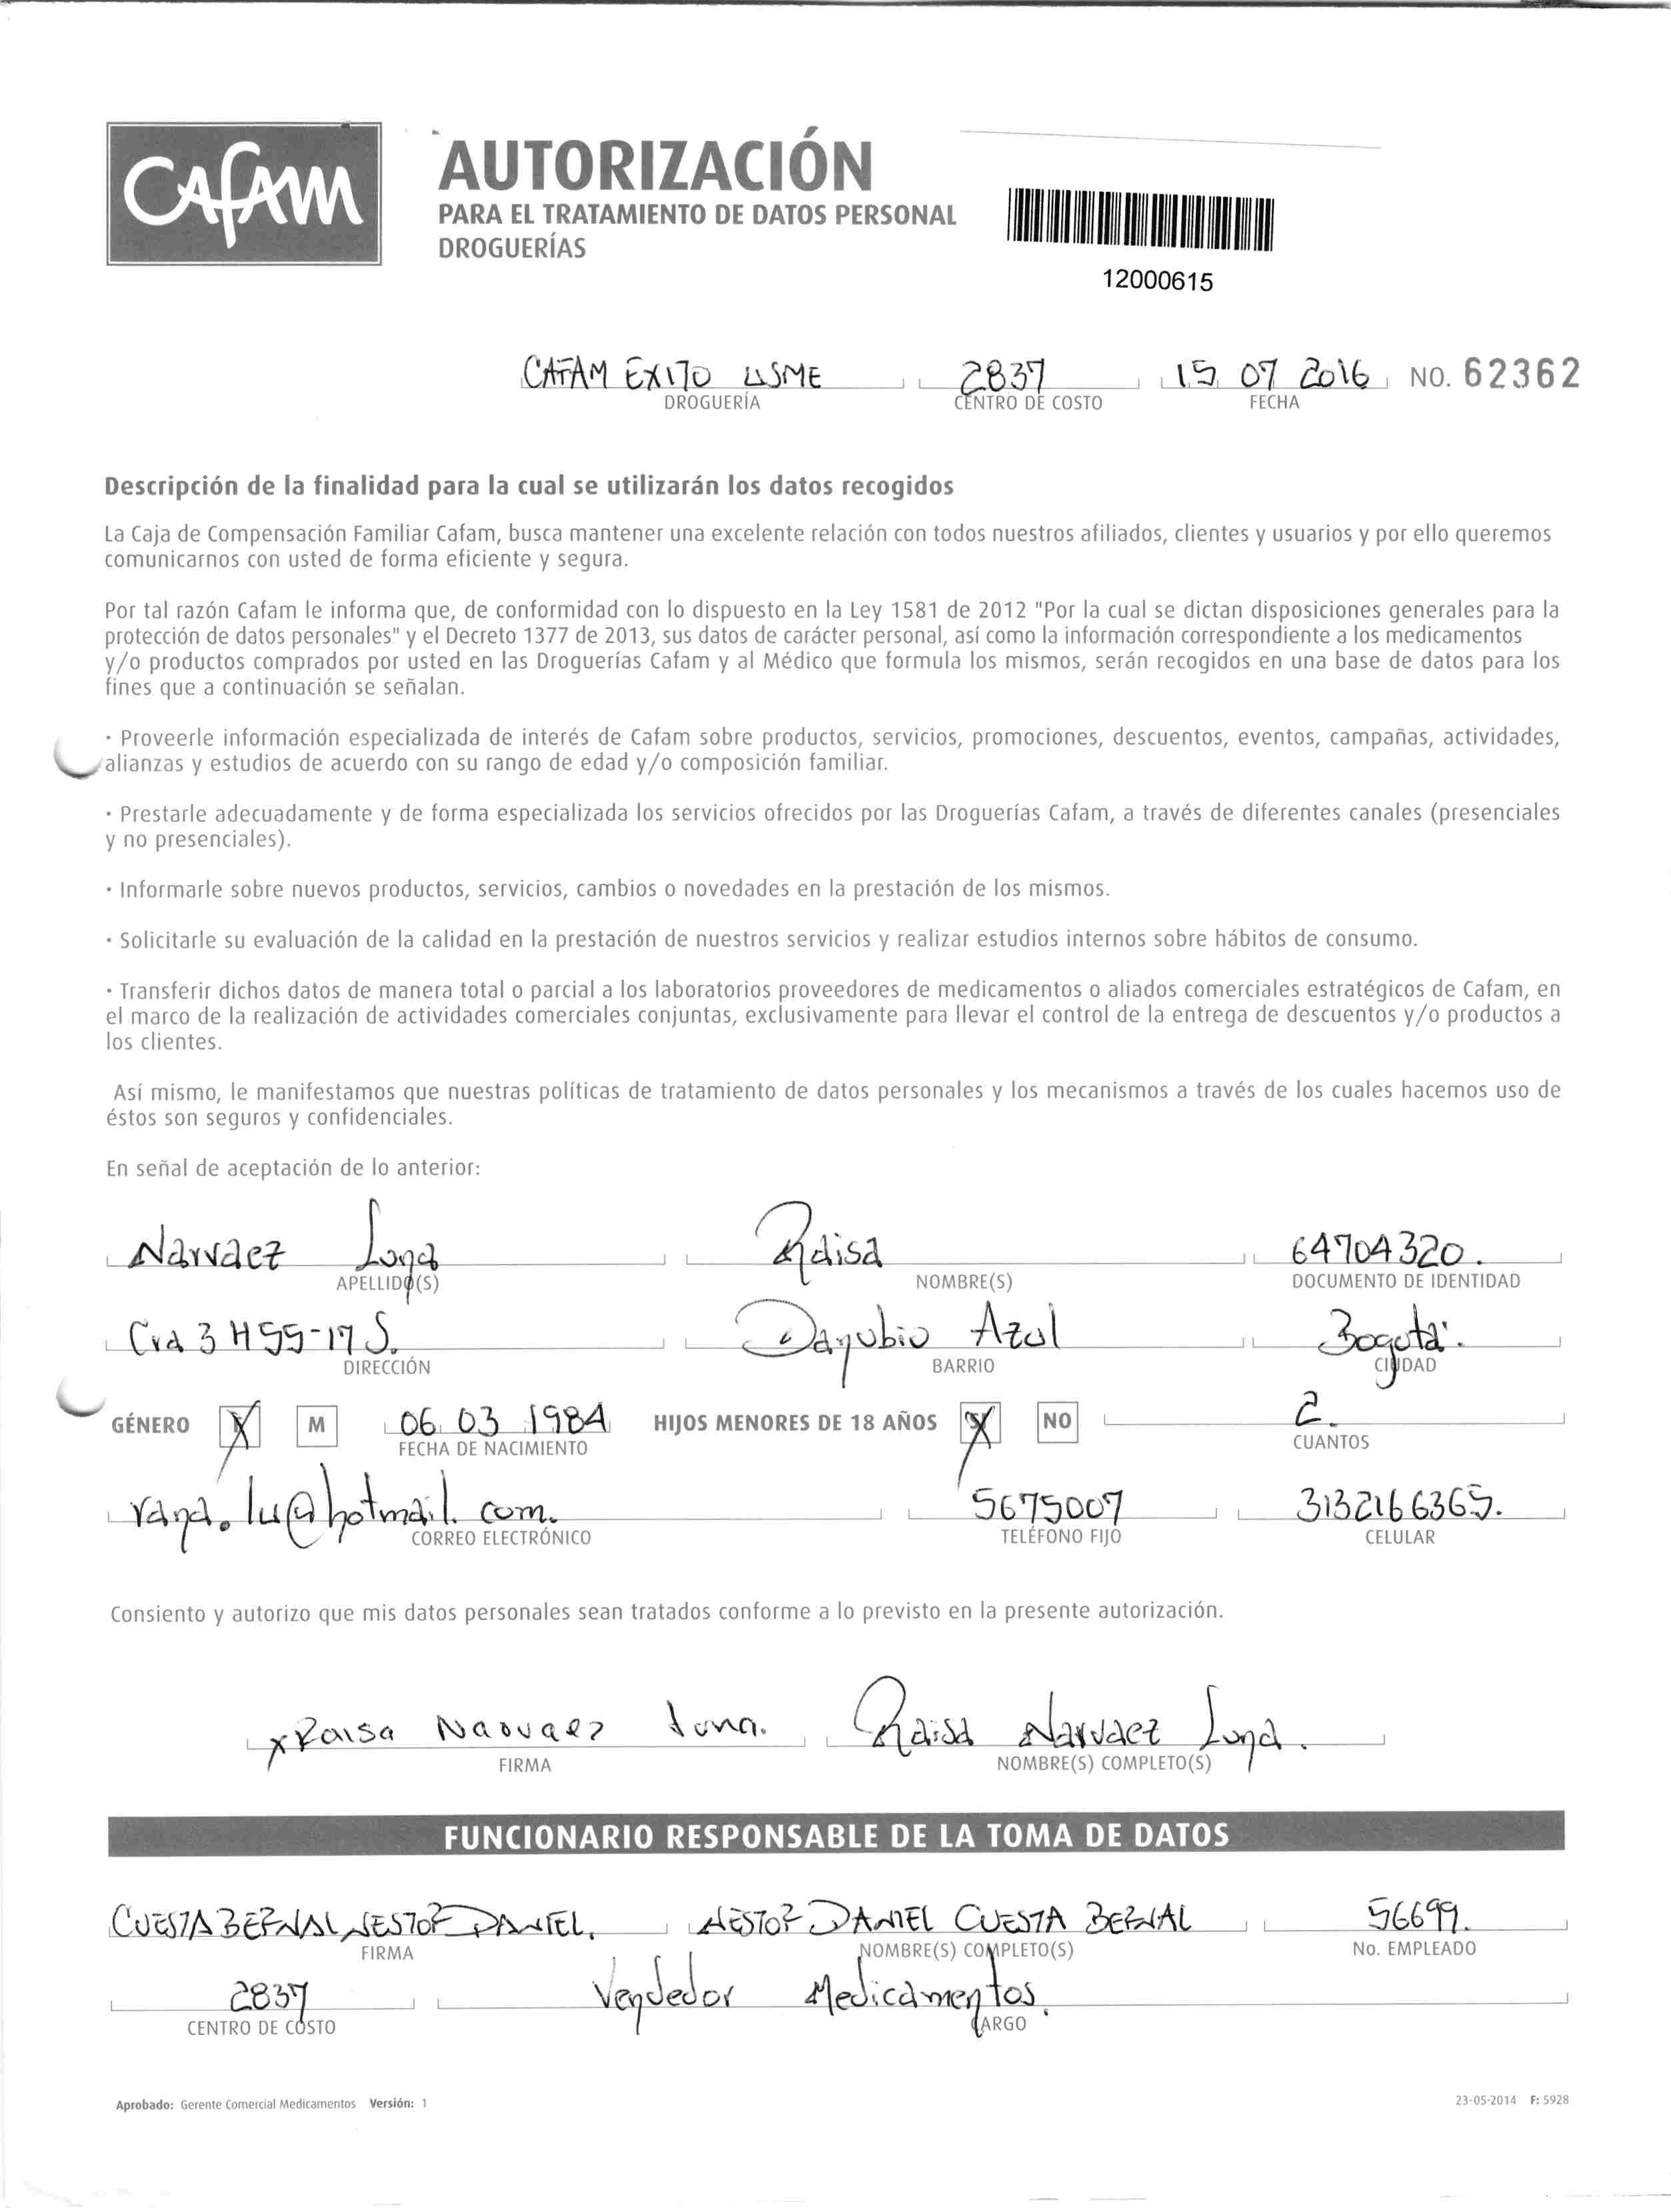 CAFAM
AUTORIZACIÓN
PARA EL TRATAMIENTO DE DATOS PERSONAL
DROGUERÍAS
12000615
CAFAM EXITO USME 2837 15 07 2016 NO. 62362
DROGUERÍA CENTRO DE COSTO FECHA
Descripción de la finalidad para la cual se utilizarán los datos recogidos
La Caja de Compensación Familiar Cafam, busca mantener una excelente relación con todos nuestros afiliados, clientes y usuarios y por ello queremos
comunicarnos con usted de forma eficiente y segura.
Por tal razón Cafam le informa que, de conformidad con lo dispuesto en la Ley 1581 de 2012 "Por la cual se dictan disposiciones generales para la
protección de datos personales" y el Decreto 1377 de 2013, sus datos de carácter personal, así como la información correspondiente a los medicamentos
y/o productos comprados por usted en las Droguerías Cafam y al Médico que formula los mismos, serán recogidos en una base de datos para los
fines que a continuación se señalan.
· Proveerle información especializada de interés de Cafam sobre productos, servicios, promociones, descuentos, eventos, campañas, actividades,
alianzas y estudios de acuerdo con su rango de edad y/o composición familiar.
· Prestarle adecuadamente y de forma especializada los servicios ofrecidos por las Droguerías Cafam, a través de diferentes canales (presenciales
y no presenciales).
· Informarle sobre nuevos productos, servicios, cambios o novedades en la prestación de los mismos.
· Solicitarle su evaluación de la calidad en la prestación de nuestros servicios y realizar estudios internos sobre hábitos de consumo.
· Transferir dichos datos de manera total o parcial a los laboratorios proveedores de medicamentos o aliados comerciales estratégicos de Cafam, en
el marco de la realización de actividades comerciales conjuntas, exclusivamente para llevar el control de la entrega de descuentos y/o productos a
los clientes.
Así mismo, le manifestamos que nuestras políticas de tratamiento de datos personales y los mecanismos a través de los cuales hacemos uso de
éstos son seguros y confidenciales.
En señal de aceptación de lo anterior:
Narvaez Luna Raisa 64704320.
APELLIDO(S) NOMBRE(S) DOCUMENTO DE IDENTIDAD
Cra 3 H 55-17 S. Danubio Azul Bogotá.
DIRECCIÓN BARRIO CIUDAD
GÉNERO X M 06 03 1984 HIJOS MENORES DE 18 AÑOS X NO 2.
FECHA DE NACIMIENTO CUANTOS
rana.lu@hotmail.com. 5675007 3132166365.
CORREO ELECTRÓNICO TELÉFONO FIJO CELULAR
Consiento y autorizo que mis datos personales sean tratados conforme a lo previsto en la presente autorización.
x Raisa Narvaez Luna. Raisa Narvaez Luna.
FIRMA NOMBRE(S) COMPLETO(S)
FUNCIONARIO RESPONSABLE DE LA TOMA DE DATOS
CUESTA BERNAL NESTOR DANIEL. NESTOR DANIEL CUESTA BERNAL 56699.
FIRMA NOMBRE(S) COMPLETO(S) No. EMPLEADO
2837 Vendedor Medicamentos.
CENTRO DE COSTO CARGO
Aprobado: Gerente Comercial Medicamentos Versión: 1 23-05-2014 F: 5928